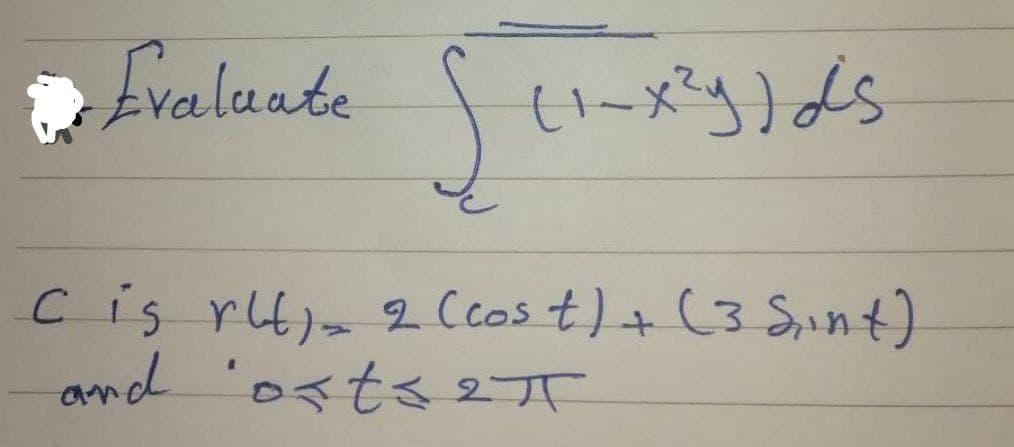 Evaluate ∫_c (1-x²y) ds
C is r(t) = 2 (cos t) + (3 Sint)
and 0 ≤ t ≤ 2π